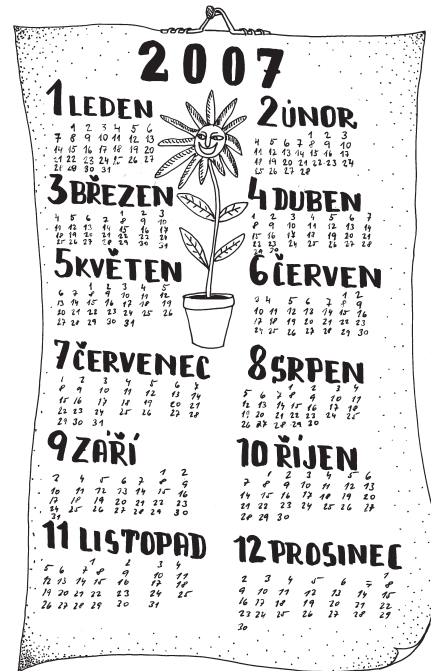 2007
1 LEDEN
1 2 3 4 5 6
7 8 9 10 11 12 13
14 15 16 17 18 19 20
21 22 23 24 25 26 27
30 31
2 ÚNOR
1 2 3
4 5 6 7 8 9 10
11 12 13 14 15 16 17
18 19 20 21 22 23 24
25 26 27 28
3 BŘEZEN
1 2 3
4 5 6 7 8 9 10
11 12 13 14 15 16 17
18 19 20 21 22 23 24
25 26 27 28 29 30 31
4 DUBEN
1 2 3 4 5 6 7
8 9 10 11 12 13 14
15 16 17 18 19 20 21
22 23 24 25 26 27 28
29 30
5 KVĚTEN
1 2 3 4 5
6 7 8 9 10 11 12
13 14 15 16 17 18 19
20 21 22 23 24 25 26
27 28 29 30 31
6 ČERVEN
1 2
3 4 5 6 7 8 9
10 11 12 13 14 15 16
17 18 19 20 21 22 23
24 25 26 27 28 29 30
7 ČERVENEC
1 2 3 4 5 6 7
8 9 10 11 12 13 14
15 16 17 18 19 20 21
22 23 24 25 26 27 28
29 30 31
8 SRPEN
1 2 3 4
5 6 7 8 9 10 11
12 13 14 15 16 17 18
19 20 21 22 23 24 25
26 27 28 29 30
9 ZÁŘÍ
1 2
3 4 5 6 7 8 9
10 11 12 13 14 15 16
17 18 19 20 21 22 23
24 25 26 27 28 29 30
31
10 ŘÍJEN
1 2 3 4 5 6
7 8 9 10 11 12 13
14 15 16 17 18 19 20
21 22 23 24 25 26 27
28 29 30
11 LISTOPAD
1 2 3 4
5 6 7 8 9 10 11
12 13 14 15 16 17 18
19 20 21 22 23 24 25
26 27 28 29 30 31
12 PROSINEC
1
2 3 4 5 6 7 8
9 10 11 12 13 14 15
16 17 18 19 20 21 22
23 24 25 26 27 28 29
30